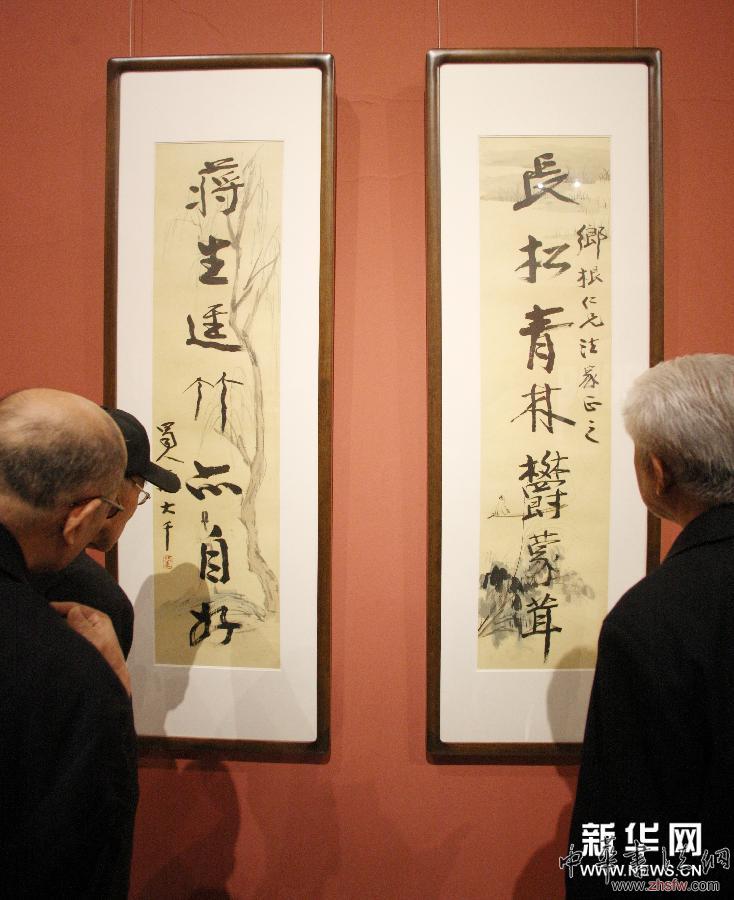 長松青林鬱蒙茸
鄉根仁兄法家正之
蔣生逕竹亦自好
蜀人
大千
新华网
WWW.NEWS.CN
中華書法網
www.zhsfw.com